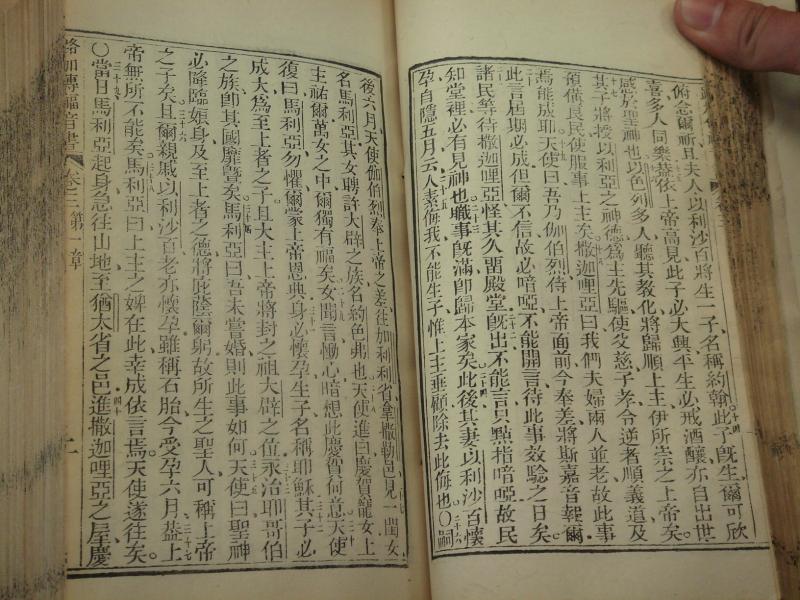 俯念爾祈且夫人以利沙百將生一子名稱約翰此子旣生爾可欣
喜多人同樂蓋依上帝高見此子必大興平生必戒酒釀亦自出世
感於聖神也以色列多人聽其教化將歸順上主伊所崇之上帝矣
其子將援以利亞之神德爲主先驅使父慈子孝令逆者順義道及
預備良民使服事上主矣撒迦哩亞曰我們夫婦兩人並老故此事
焉能成耶天使曰吾乃伽伯烈侍上帝面前今奉差將斯嘉音報爾
此言屆期必成但爾不信故必喑啞不能開言待此事效驗之日矣
諸民等待撒迦哩亞怪其久畱殿堂旣出不能言只點指喑啞故民
知堂裡必有見神也職事旣滿卽歸本家矣此後其妻以利沙百懷
孕自隱五月云人素侮我不能生子惟上主垂顧除去此侮也〇嗣
後六月天使伽伯烈奉上帝之差往加利利省拿撒勒邑見一閨女
名馬利亞其女聘許大辟之族名約色弗也天使進曰慶賀寵女上
主祐爾萬女之中爾獨有福矣女聞言慟心暗想此慶賀何意天使
復曰馬利亞勿懼爾蒙上帝恩典身必懷孕生子名稱耶穌其子必
成大爲至上者之子且大主上帝將封之祖大辟之位永治耶哥伯
之族卽其國靡曁矣馬利亞曰吾未嘗婚則此事如何天使曰聖神
必降臨娘身及至上者之德將庇蔭爾躬故所生之聖人可稱上帝
之子矣且爾親戚以利沙百老亦懷孕雖稱石胎今受孕六月蓋上
帝無所不能矣馬利亞曰上主之婢在此幸成依言焉天使遂往矣
〇當日馬利亞起身急往山地至猶大省之邑進撒迦哩亞之屋慶
路加傳福音書 卷之三 第一章 二